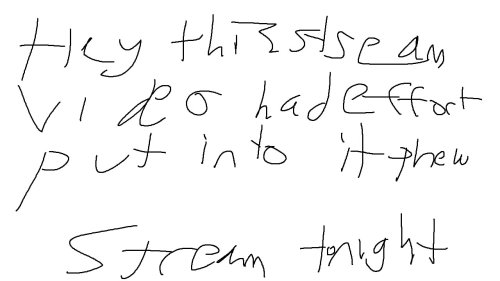 Hey this
video had effort
put into it phew
Stream tonight